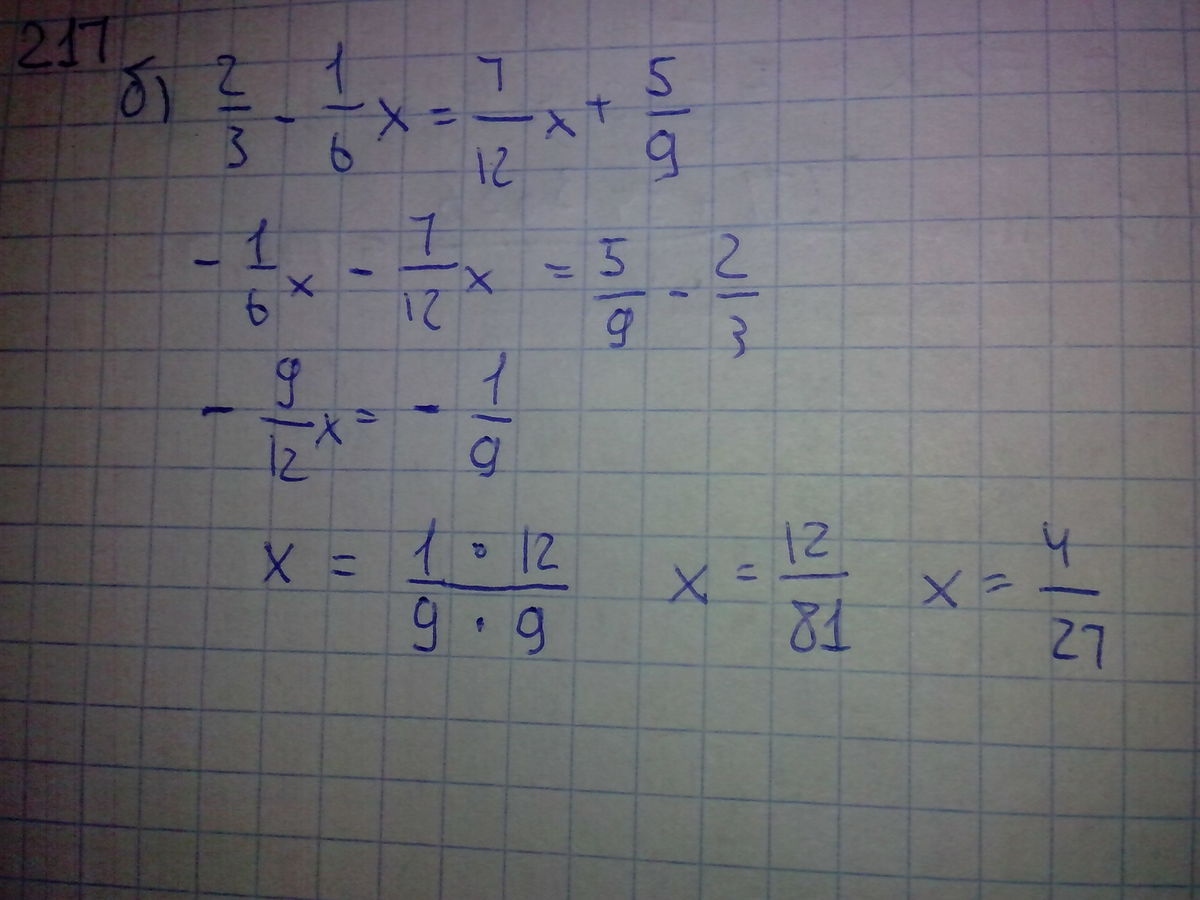 217
б) 2/3 - 1/6 x = 7/12 x + 5/9
- 1/6 x - 7/12 x = 5/9 - 2/3
- 9/12 x = - 1/9
x = 1 · 12 / 9 · 9 x = 12/81 x = 4/27